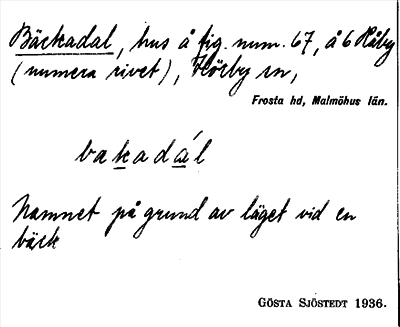 Bäckadal, hus å fig. num. 67, å 6 Håby
(numera rivet), Hörby sn,
Frosta hd, Malmöhus län.
bakadál
Namnet på grund av läget vid en
bäck
GÖSTA SJÖSTEDT 1936.